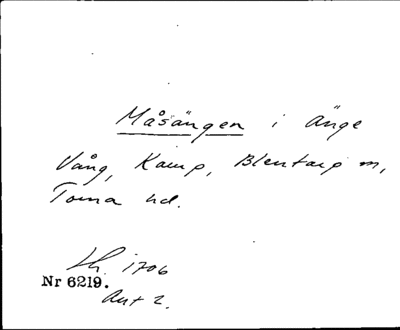 Måsängen i Änge
Vång, Kamp, Blentarp m,
Torna hd.
Lh. 1706
Nr 6219.
Akt 2.